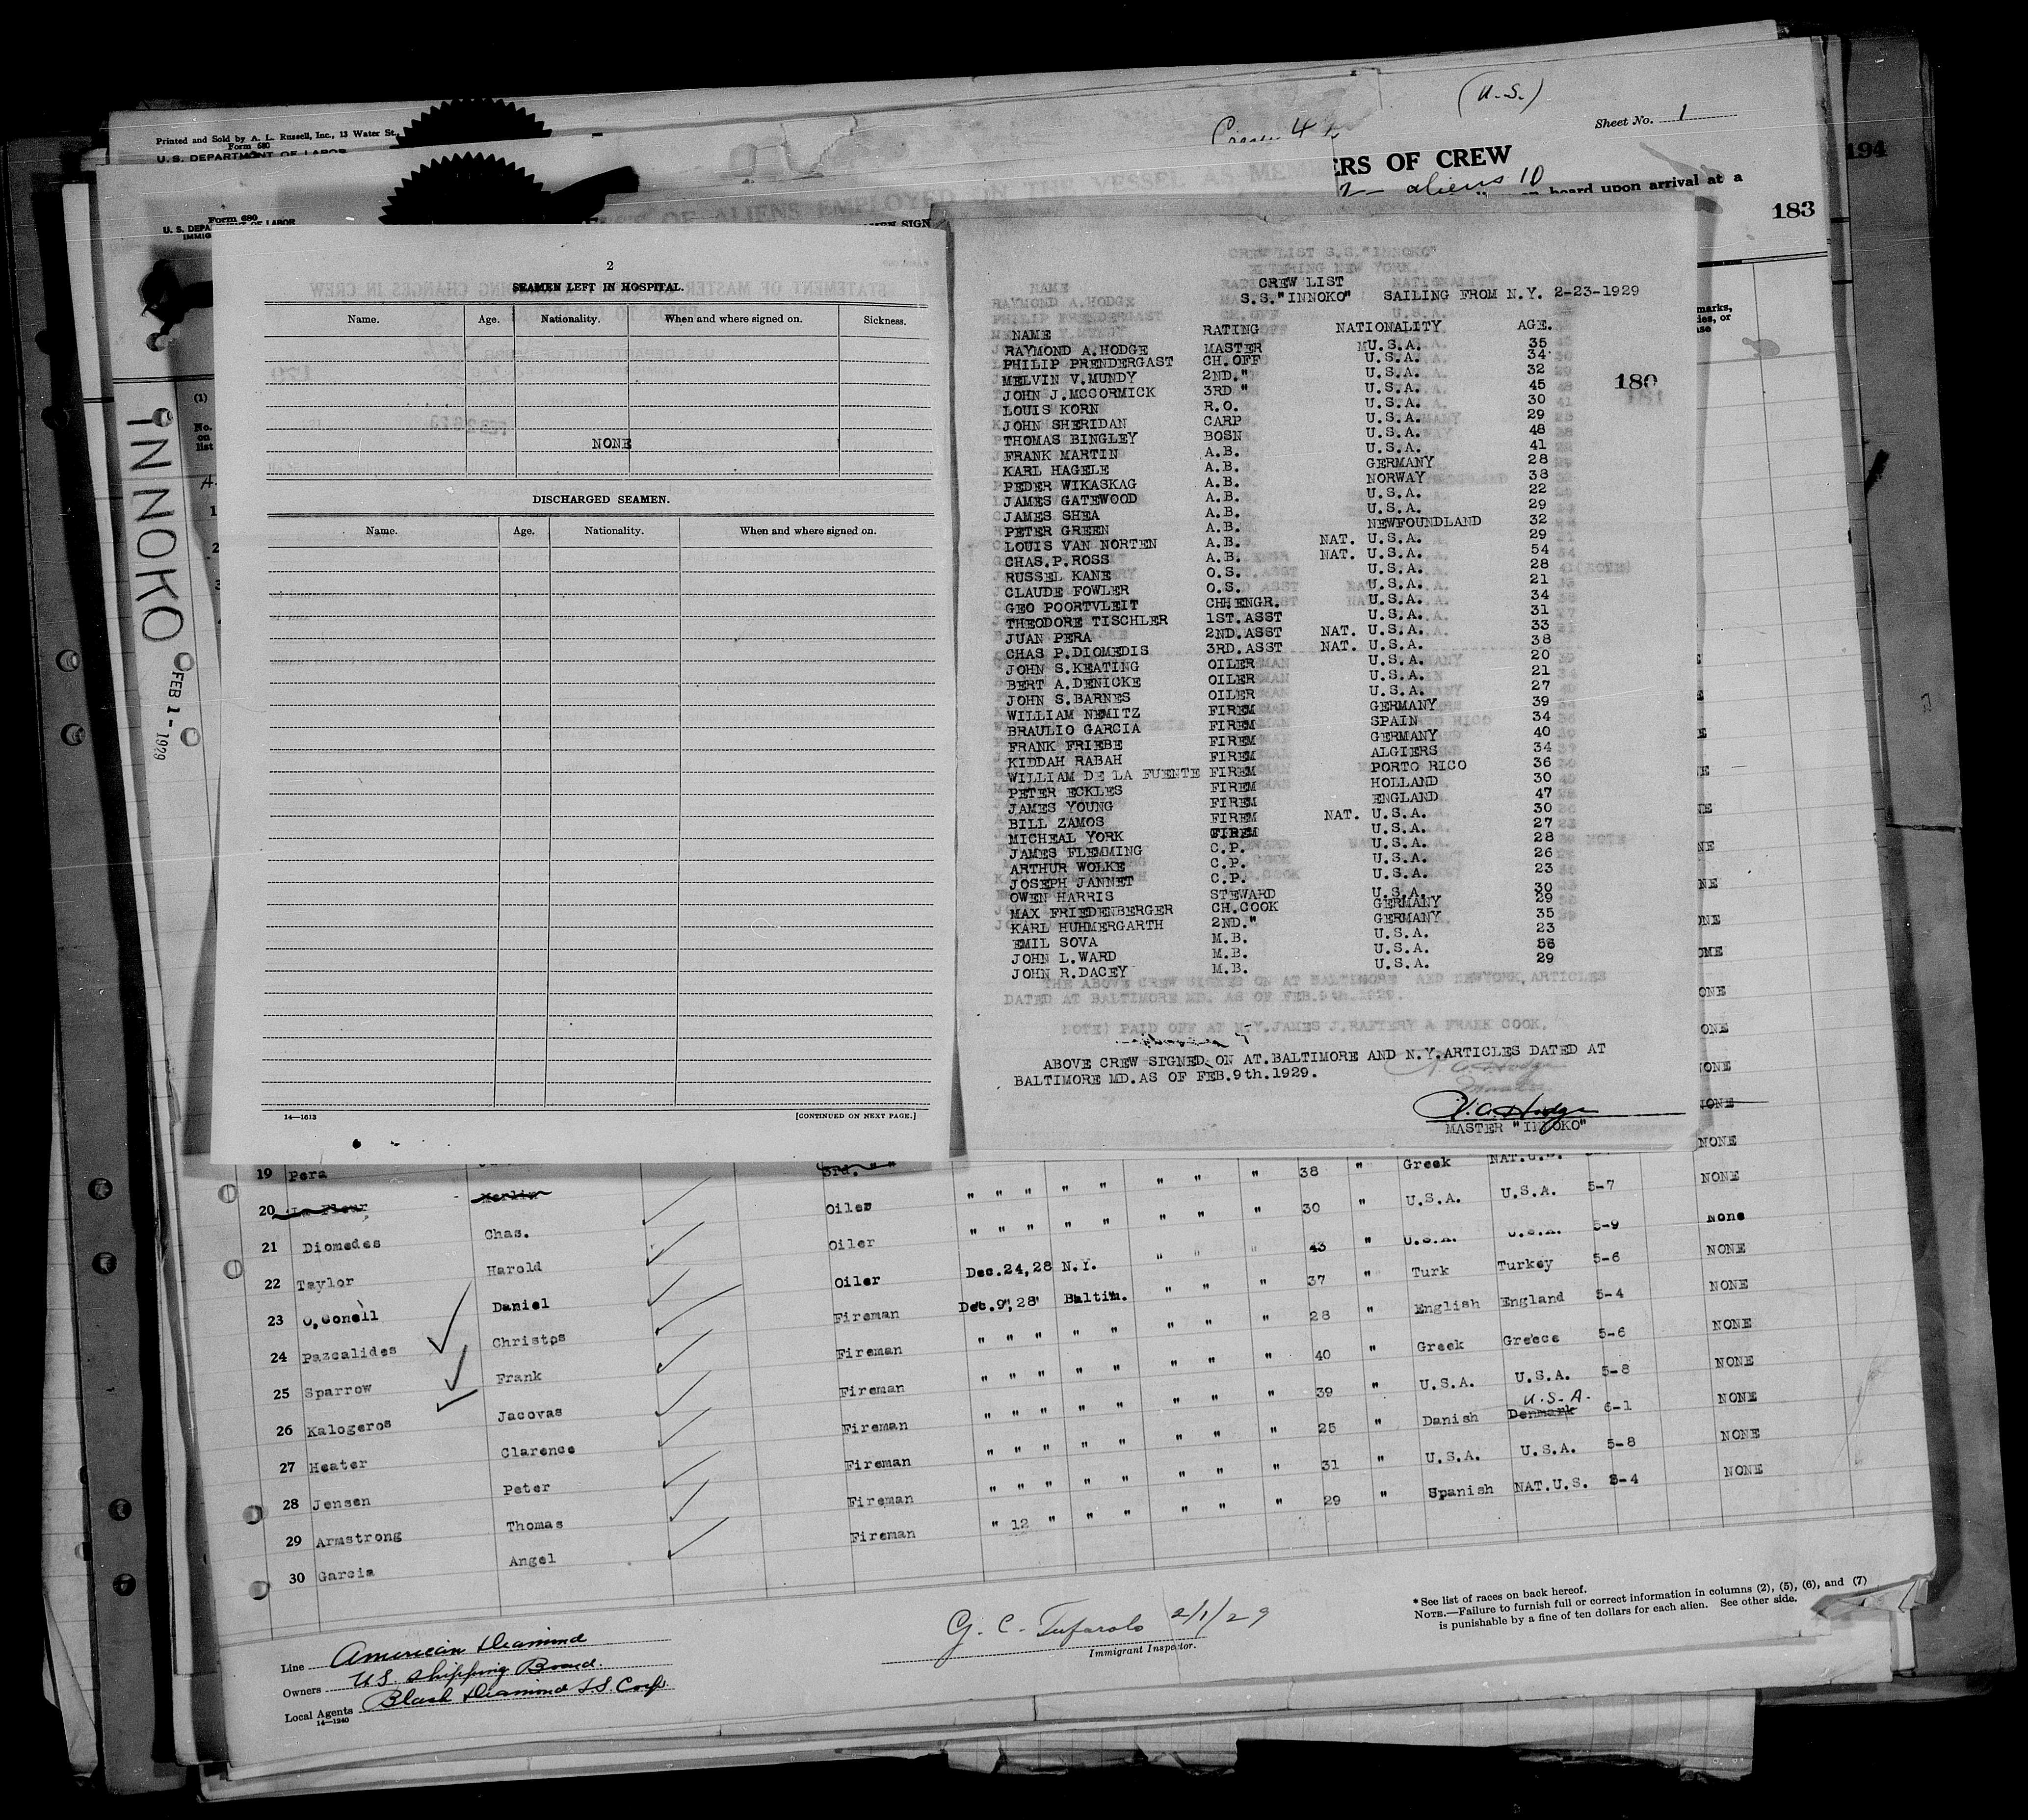 (U.S.)
Sheet No. 1
Printed and Sold by A. L. Russell, Inc., 13 Water St.,
Form 680
U. S. DEPARTMENT OF LABOR
ERS OF CREW
aliens 10
on board upon arrival at a
194
183
Form 680
U. S. DEPA
IMMIG
(1)
No.
on
list
INNOKO
FEB 1 - 1929
2
SEAMEN LEFT IN HOSPITAL.
Name. Age. Nationality. When and where signed on. Sickness.
NONE
DISCHARGED SEAMEN.
Name. Age. Nationality. When and where signed on.
14—1613 [CONTINUED ON NEXT PAGE.]
CREW LIST
S.S."INNOKO" SAILING FROM N.Y. 2-23-1929
NAME RATING NATIONALITY AGE.
RAYMOND A.HODGE MASTER MU.S.A. 35
PHILIP PRENDERGAST CH.OFF U.S.A. 34
MELVIN V.MUNDY 2ND." U.S.A. 32
JOHN J.MCCORMICK 3RD " U.S.A. 45
LOUIS KORN R.O. U.S.A. 30
JOHN SHERIDAN CARP U.S.A. 29
THOMAS BINGLEY BOSN U.S.A. 48
FRANK MARTIN A.B. U.S.A. 41
KARL HAGELE A.B. GERMANY 28
PEDER WIKASKAG A.B. NORWAY 38
JAMES GATEWOOD A.B. U.S.A. 22
JAMES SHEA A.B. U.S.A. 29
PETER GREEN A.B. NEWFOUNDLAND 32
LOUIS VAN NORTEN A.B. NAT. U.S.A. 29
CHAS.P.ROSS A.B. NAT. U.S.A. 54
RUSSEL KANE O.S. U.S.A. 28
CLAUDE FOWLER O.S. U.S.A. 21
GEO POORTVLEIT CHHENGR. U.S.A. 34
THEODORE TISCHLER 1ST.ASST U.S.A. 31
JUAN PERA 2ND.ASST NAT. U.S.A. 33
CHAS P.DIOMEDIS 3RD.ASST NAT. U.S.A. 38
JOHN S.KEATING OILER U.S.A. 20
BERT A.DENICKE OILER U.S.A. 21
JOHN S.BARNES OILER U.S.A. 27
WILLIAM NEMITZ FIREM GERMANY 39
BRAULIO GARCIA FIREM SPAIN 34
FRANK FRIEBE FIREM GERMANY 40
KIDDAH RABAH FIREM ALGIERS 34
WILLIAM DE LA FUENTE FIREM PORTO RICO 36
PETER ECKLES FIREM HOLLAND 30
JAMES YOUNG FIREM ENGLAND 47
BILL ZAMOS FIREM NAT. U.S.A. 30
MICHEAL YORK FIREM U.S.A. 27
JAMES FLEMMING C.P. U.S.A. 28
ARTHUR WOLKE C.P. U.S.A. 26
JOSEPH JANNET C.P. U.S.A. 23
OWEN HARRIS STEWARD U.S.A. 30
MAX FRIEDENBERGER CH.COOK GERMANY 29
KARL HUHMERGARTH 2ND." GERMANY 35
EMIL SOVA M.B. U.S.A. 23
JOHN L.WARD M.B. U.S.A.
JOHN R.DACEY M.B. U.S.A. 29
180
THE ABOVE CREW SIGNED ON AT BALTIMORE AND NEWYORK, ARTICLES
DATED AT BALTIMORE MD. AS OF FEB.9th.1929.
NOTE) PAID OFF AT N.Y.JAMES J.RAFTERY & FRANK COOK.
ABOVE CREW SIGNED ON AT.BALTIMORE AND N.Y.ARTICLES DATED AT
BALTIMORE MD.AS OF FEB.9th.1929.
MASTER "INNOKO"
19 Pera 3rd. " " 38 " Greek NAT.U.S. NONE
20 La Fleur Merlin Oiler " " " " " " " " 30 " U.S.A. U.S.A. 5-7 NONE
21 Diomedes Chas. Oiler " " " " " " " " 43 " U.S.A. U.S.A. 5-9 None
22 Taylor Harold Oiler Dec.24,28 N.Y. " " " 37 " Turk Turkey 5-6 NONE
23 O,Conell Daniel Fireman Dec.9",28" Baltim. " " " 28 " English England 5-4 NONE
24 Pazcalides Christos Fireman " " " " " " " " 40 " Greek Greece 5-6 NONE
25 Sparrow Frank Fireman " " " " " " " " 39 " U.S.A. U.S.A. 5-8 NONE
26 Kalogeros Jacovas Fireman " " " " " " " " 25 " Danish Denmark U.S.A. 6-1 NONE
27 Heater Clarence Fireman " " " " " " " " 31 " U.S.A. U.S.A. 5-8 NONE
28 Jensen Peter Fireman " " " " " " " " 29 " Spanish NAT.U.S. 5-4 NONE
29 Armstrong Thomas Fireman " 12 " " " " " "
30 Garcia Angel
*See list of races on back hereof.
NOTE.—Failure to furnish full or correct information in columns (2), (5), (6), and (7)
is punishable by a fine of ten dollars for each alien. See other side.
G. C. Tufarolo 2/1/29
Immigrant Inspector.
Line American Diamond
Owners U.S. Shipping Board.
Local Agents Black Diamond S.S. Corp.
14—1240